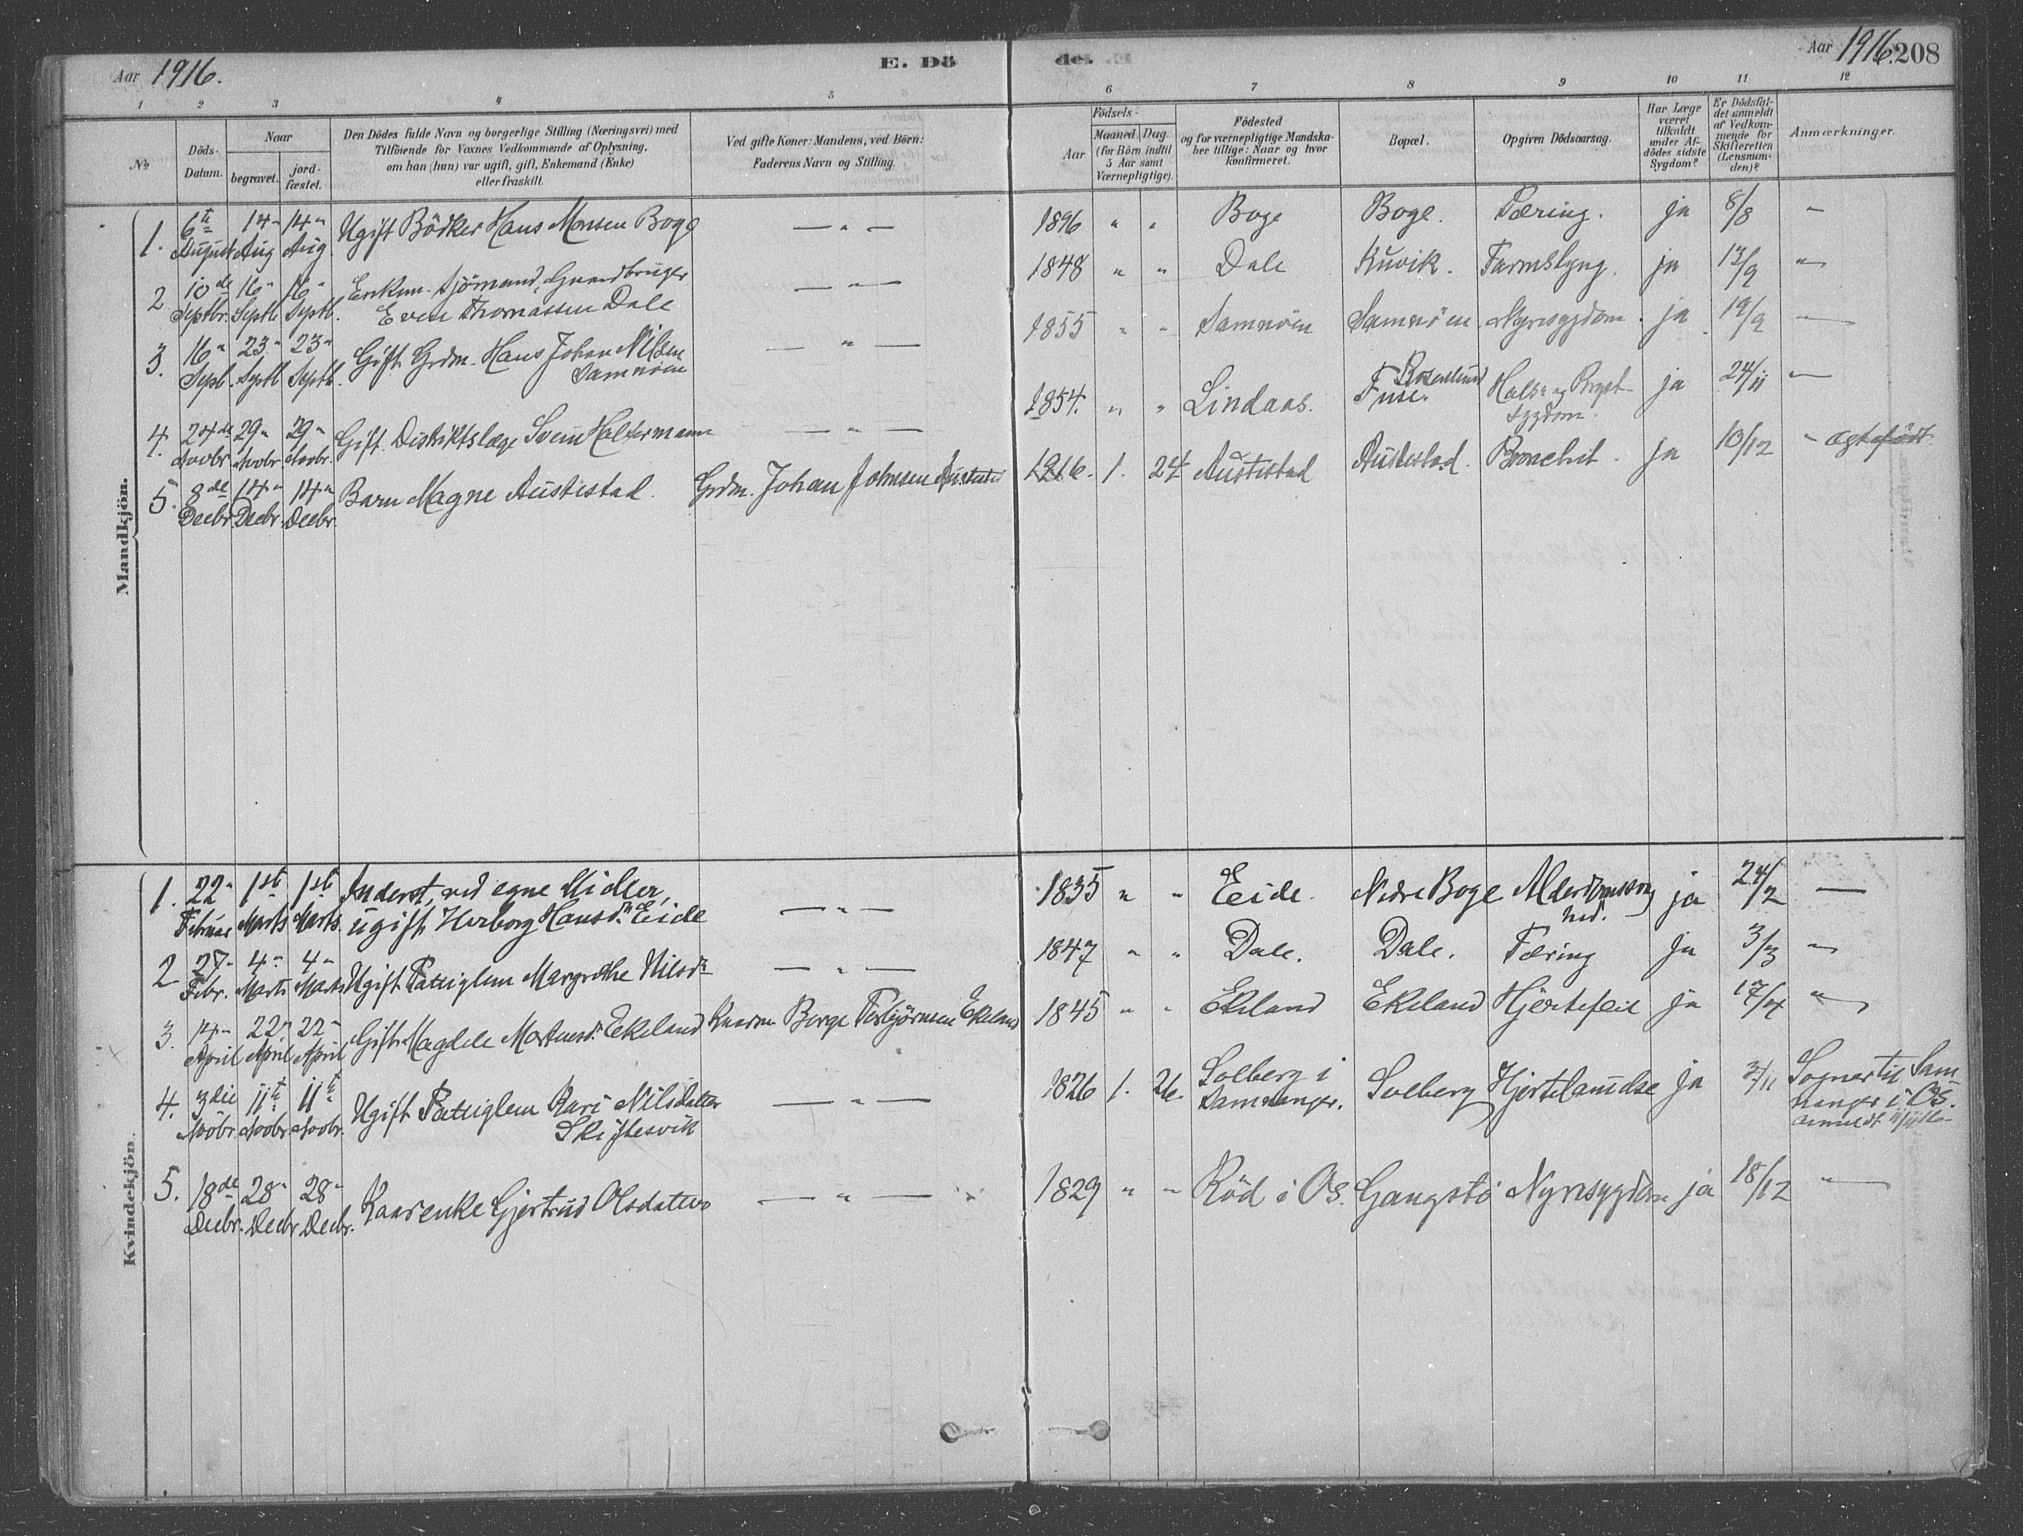 Aar 1916.
E. Dö
de.
Aar 1916. 208
1 2 3 4 5 6 7 8 9 10 11 12
No
Döds-Datum.
Naar
begravet.
jord-fæstet.
Den Dödes fulde Navn og borgerlige Stilling (Næringsvei) med
Tilföiende for Voxnes Vedkommende af Oplysning,
om han (hun) var ugift, gift, Enkemand (Enke)
eller fraskilt.
Ved gifte Koner: Mandens, ved Börn:
Faderens Navn og Stilling.
Födsels-
Aar
Maaned. Dag
(for Börn indtil
5 Aar samt
Værnepligtige).
Födested
og for værnepligtige Mandska-
ber tillige: Naar og hvor
konfirmeret.
Bopæl.
Opgiven Dödsaarsag.
Har Læge
været
tilkaldt
under Af-
dödes sidste
Sygdom?
Er Dödsfal-
det anmeldt
af Vedkom-
mende for
Skifteretten
(Lensman-
den)?
Anmærkninger.
Mandkjön.
1. 6te August 14" Aug 14" Aug. Ugift Bödker Hans Monsen Boge — " — 1896 " " Boge Boge. Tæring. ja 8/8 —
2 10de Septbr. 16" Septb 16" Septb. Enkem. Sjömand, Gaardbruger
Even Thomassen Dale — " — 1848 " " Dale Kuvik. Tarmslyng. ja 13/9 "
3. 16" Septb. 23" Septb 23" Septb. Gift Grdm. Hans Johan Nilsen
Samnöen — " — 1855 " " Samnöen Samnöen Nyresygdom. ja 19/9 —
4. 24de Novbr. 29" Novbr 29" Novbr. Gift Distriktslæge Svein Holtermann — " — 1854. " " Lindaas. Rosenlund
Fuse. Hals- og Bryst-
sygdom. ja 24/11 —
5. 8de Decbr. 14" Decbr. 14" Decbr. Barn Magne Austestad. Grdm. Johan Johnsen Austestad 1916. 1. 24 Austestad Austestad. Bronchit. ja 10/12 " ægtefödt
Kvindekjön.
1. 22" Februar 1ste Marts 1ste Marts. Inderst, ved egne Midler,
ugift Herborg Hansdr. Eide — " — 1835 " " Eide. Nedre Boge Alderdomssvag
hed. ja 24/2 —
2 27" Febr. 4" Marts 4" Marts Ugift Fattiglem Margrethe Nilsdr — " — 1847 " " Dale. Dale. Tæring ja 3/3 "
3. 14" April 22" April 22" April Gift Magdele Mortensdr. Ekeland Kaarm Berge Torbjørnsen Ekeland 1845 " " Ekeland Ekeland Hjertefeil ja 17/4 "
4. 3die Novbr 11te Novbr 11te Novbr. Ugift Fattiglem Kari Nilsdatter
Skiftesvik — " — 1826 1. 26. Solberg i
Samnanger. Solberg Hjertelamelse ja 3/11 Sogner til Sam
nanger i Os.
anmeldt
5. 18de Decbr. 28" Decbr 28" Decbr. Kaarenke Gjertrud Olsdatter — " — " 1829 " " Röd i Os. Gangstö Nyresygdom ja 18/12 "